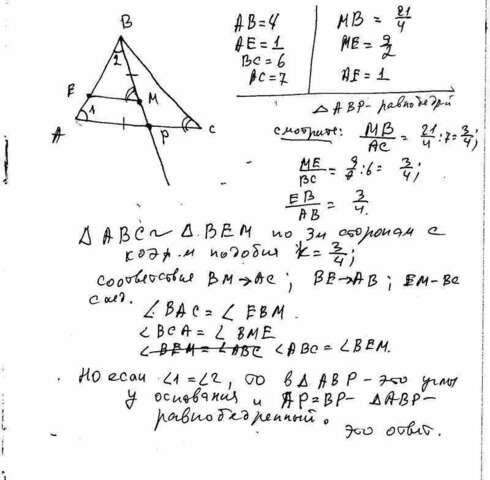 B
2
E
M
1
A
P
C
AB=4
AE=1
BC=6
AC=7
MB = 21/4
ME = 9/2
AE = 1
△ABP - равнобедрй
смотрите: MB/AC = 21/4 : 7 = 3/4;
ME/BC = 9/2 : 6 = 3/4;
EB/AB = 3/4.
△ABC ~ △BEM по 3м сторонам с
коэф.м подобия k = 3/4;
соответствие BM→AC; BE→AB; EM-BC
след.
∠BAC = ∠EBM.
∠BCA = ∠BME
∠BEM = ∠ABC ∠ABC = ∠BEM.
Но если ∠1=∠2, то в △ABP - это углы
у основания и AP=BP- △ABP-
равнобедренный.
это ответ.